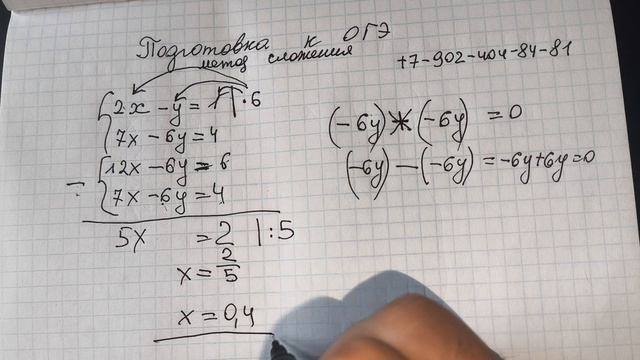 Подготовка к ОГЭ
метод сложения
+7-902-404-84-81
2x - y = 1 | · 6
7x - 6y = 4
12x - 6y = 6
7x - 6y = 4
5x = 2 | : 5
x = 2/5
x = 0,4
(-6y) (-6y) = 0
(-6y) - (-6y) = -6y + 6y = 0